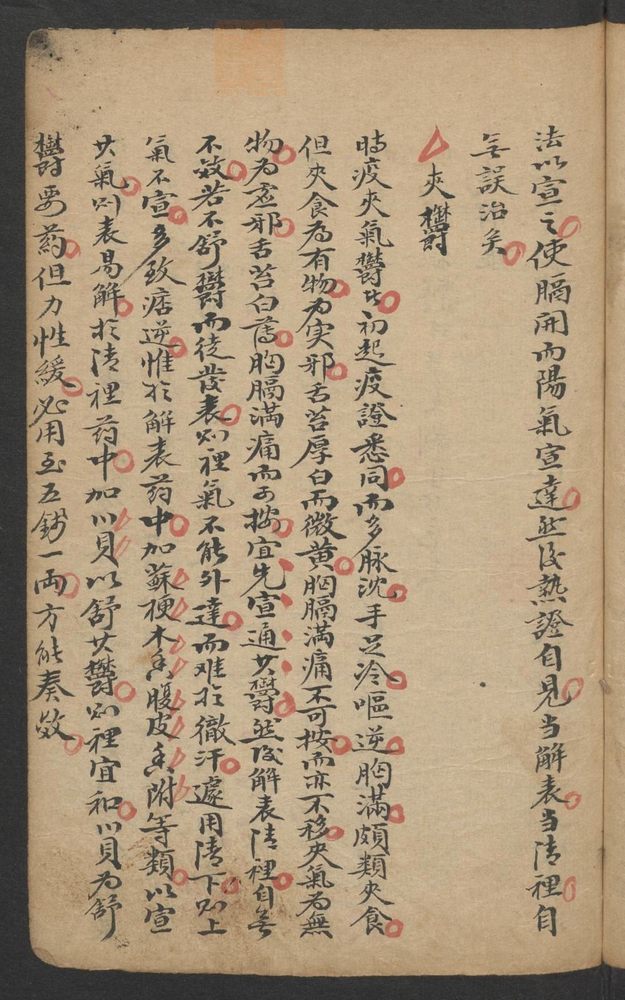 法以宣之使膈開而陽氣宣達然后熱證自見当解表当清裡自
無誤治矣
夾鬱
時疫夾氣鬱者初起疫證悉同而多脉沈手足冷嘔逆胸滿頗類夾食
但夾食為有物為实邪舌苔厚白而微黄胸膈滿痛不可按而亦不移夾氣為無
物为虛邪舌苔白薄胸膈滿痛而可按宜先宣通其鬱然后解表清裡自無
不效若不舒鬱而徒發表则裡氣不能外達而难於徹汗遽用清下则上
氣不宣多致痞逆惟於解表药中加蘇梗木香腹皮香附等類以宣
其氣则表易解於清裡药中加川貝以舒其鬱则裡宜和川貝为舒
鬱要葯但力性緩必用至五錢一兩方能奏效